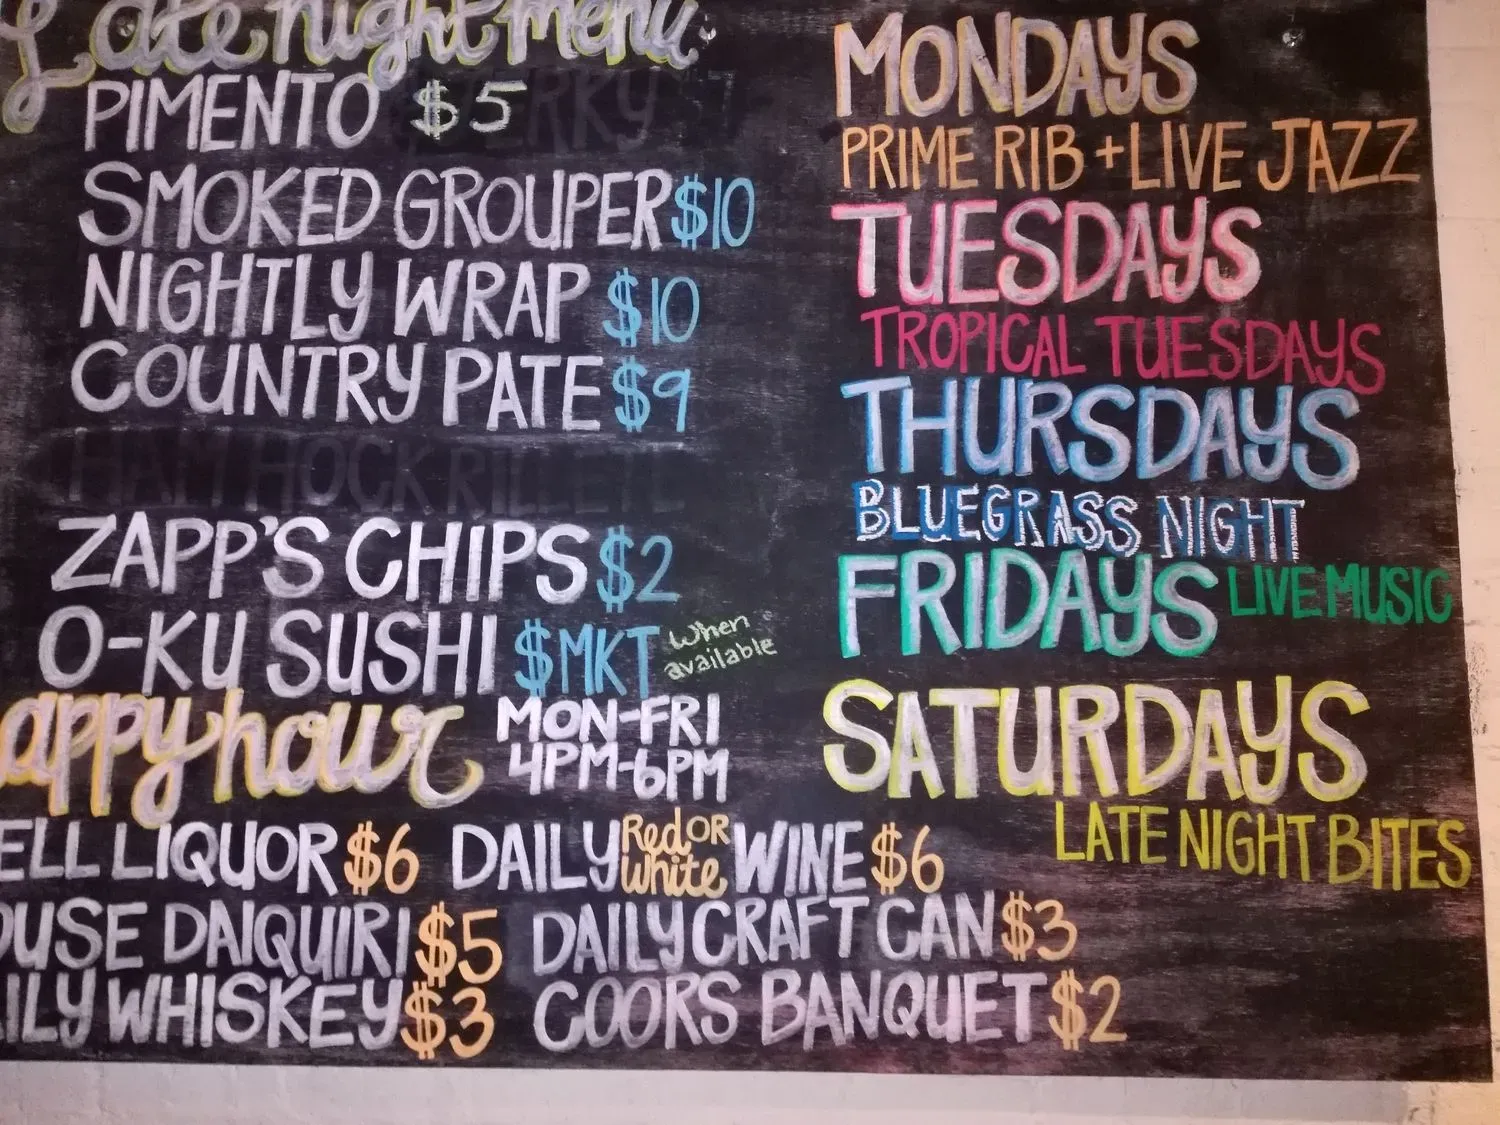 Late night menu
PIMENTO $5
SMOKED GROUPER $10
NIGHTLY WRAP $10
COUNTRY PATE $9
HAM HOCK RILLETTE
ZAPP'S CHIPS $2
O-KU SUSHI $MKT When available
appy hour MON-FRI 4PM-6PM
ELL LIQUOR $6 DAILY Red OR White WINE $6
OUSE DAIQUIRI $5 DAILY CRAFT CAN $3
ILY WHISKEY $3 COORS BANQUET $2
MONDAYS
PRIME RIB + LIVE JAZZ
TUESDAYS
TROPICAL TUESDAYS
THURSDAYS
BLUEGRASS NIGHT
FRIDAYS LIVE MUSIC
SATURDAYS
LATE NIGHT BITES